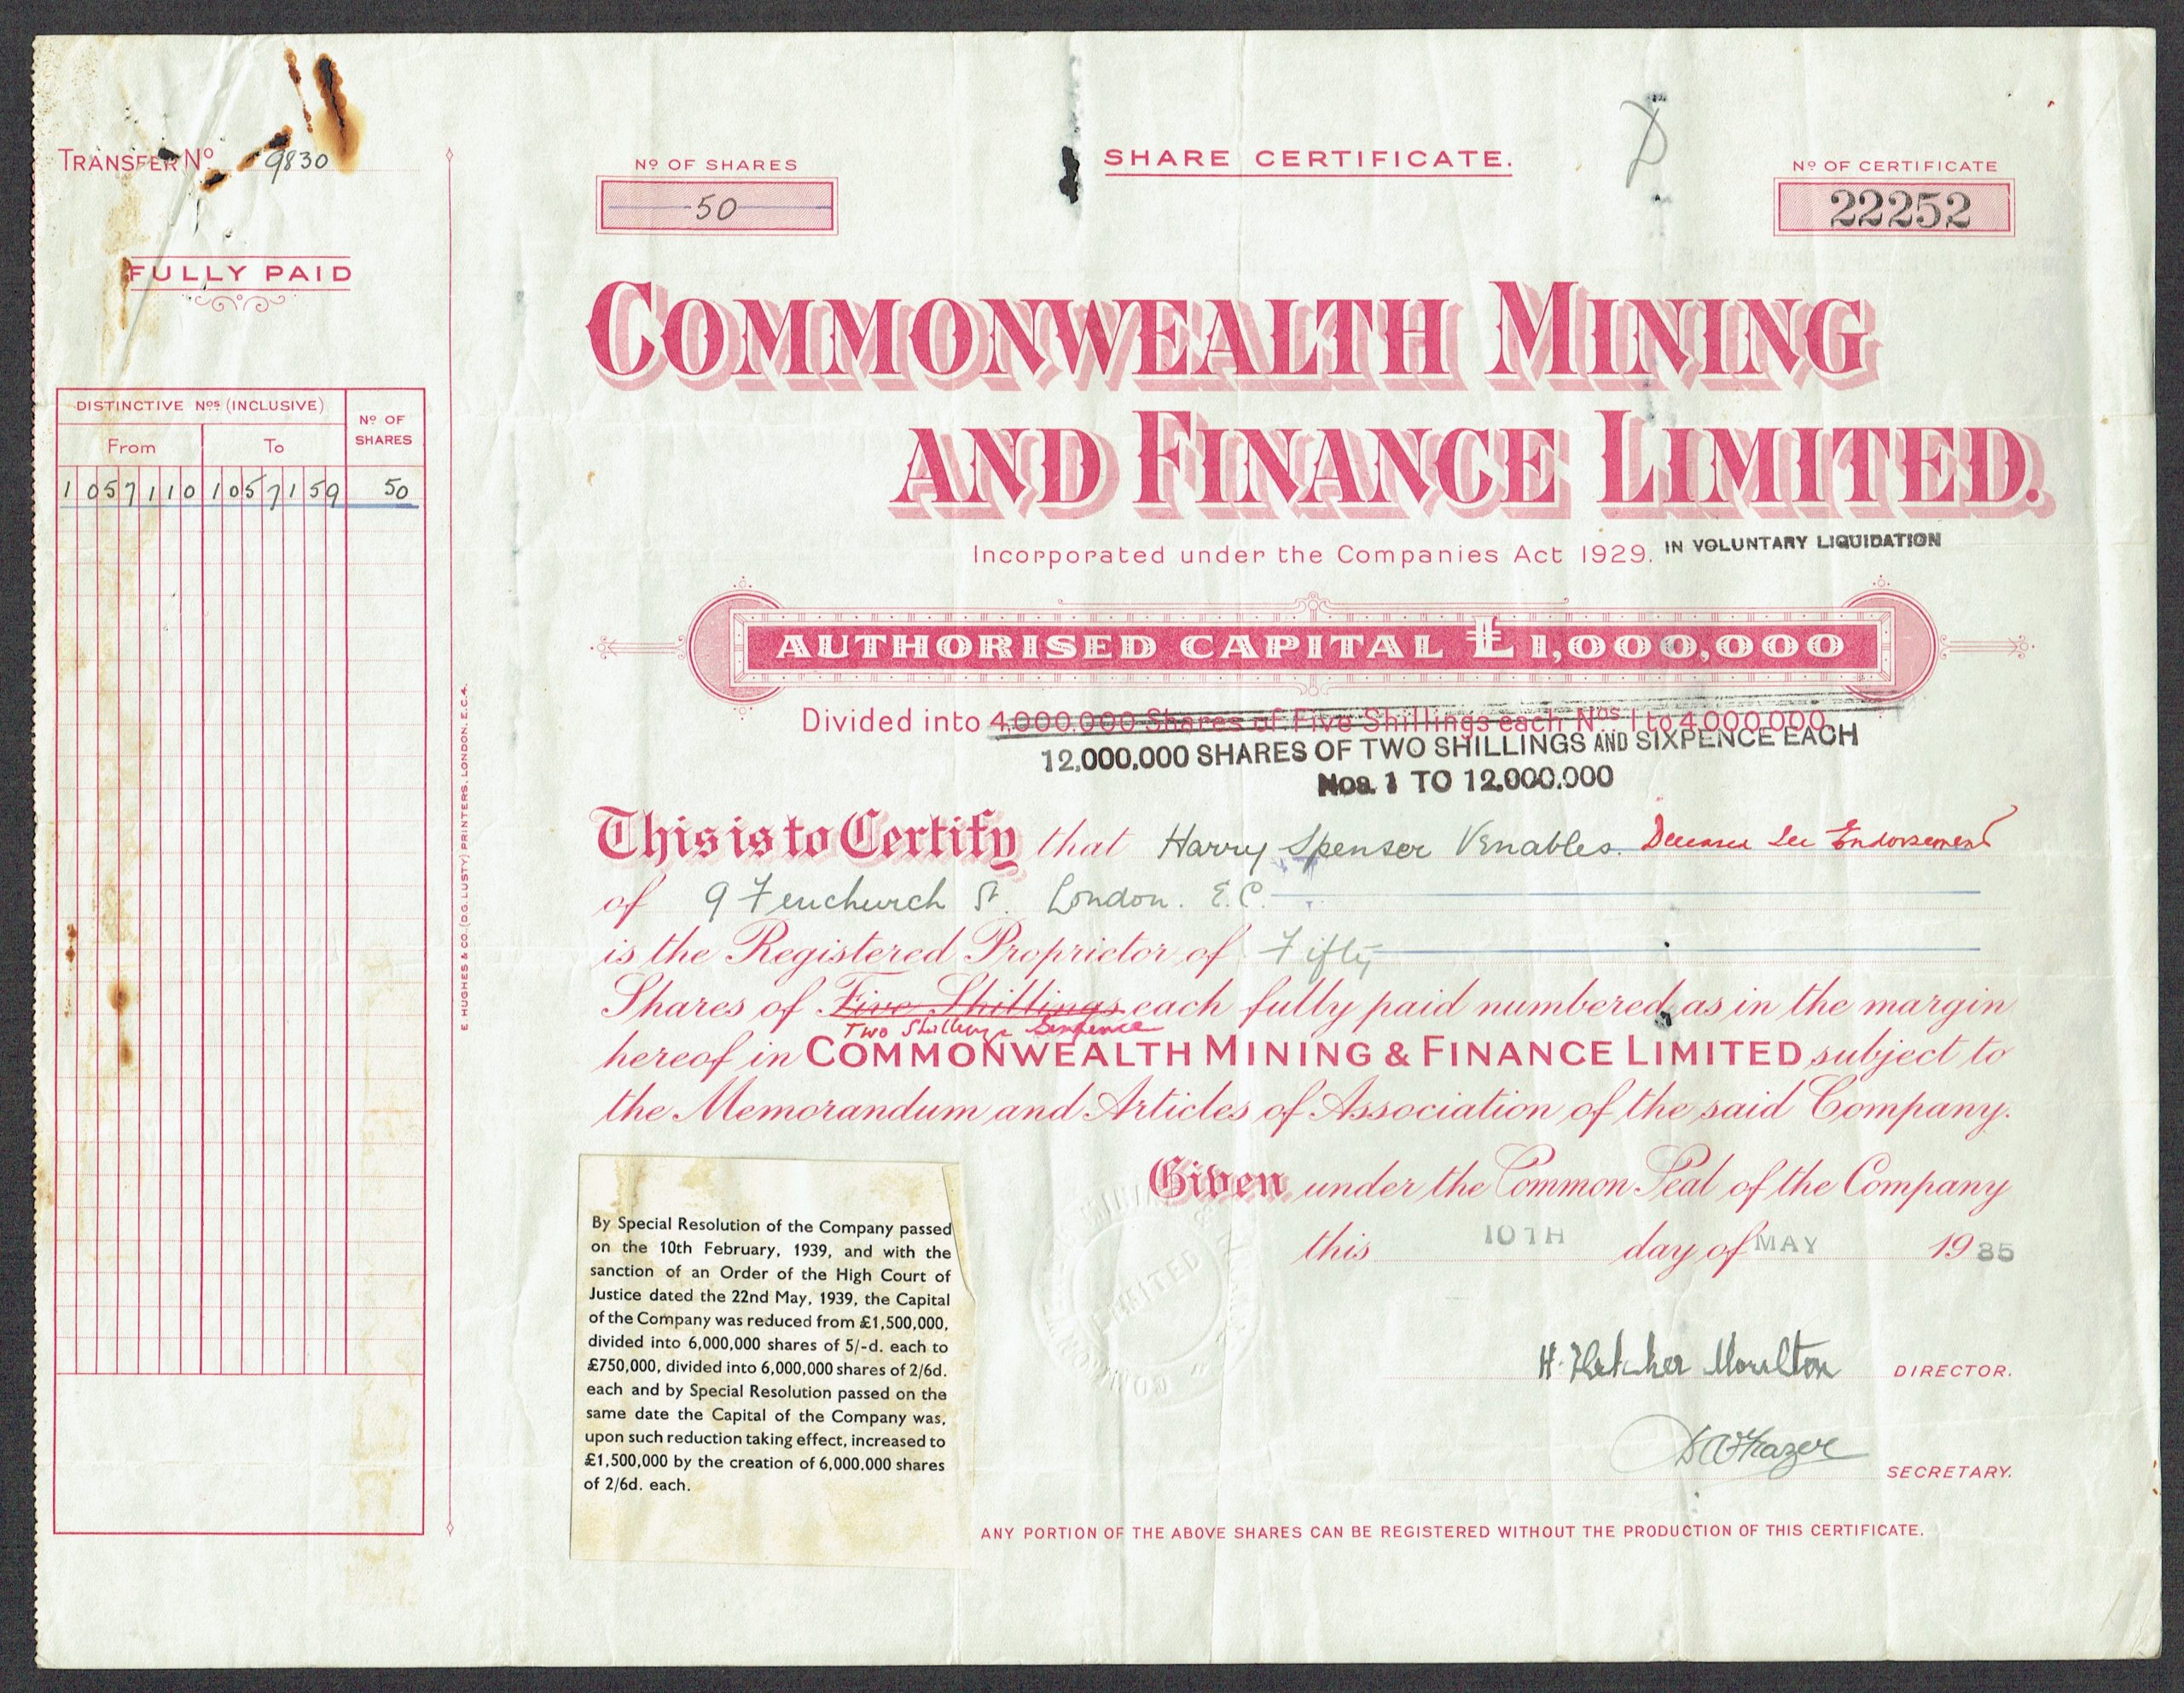 TRANSFER Nº 9830
FULLY PAID
DISTINCTIVE Nos (INCLUSIVE)
Nº OF SHARES
From To
1057110 1057159 50
E. HUGHES & CO. (D.G. LUSTY) PRINTERS, LONDON, E.C.4.
Nº OF SHARES
50
SHARE CERTIFICATE.
Nº OF CERTIFICATE
22252
COMMONWEALTH MINING
AND FINANCE LIMITED.
Incorporated under the Companies Act 1929. IN VOLUNTARY LIQUIDATION
AUTHORISED CAPITAL £1,000,000
Divided into 4,000,000 Shares of Five Shillings each Nos 1 to 4,000,000
12,000,000 SHARES OF TWO SHILLINGS AND SIXPENCE EACH
Nos. 1 TO 12,000,000
This is to Certify that Harry Spenser Venables. Deceased See Endorsement
of 9 Fenchurch St. London. E.C.
is the Registered Proprietor of Fifty
Shares of Five Shillings each fully paid numbered as in the margin
Two Shillings Sixpence
hereof in COMMONWEALTH MINING & FINANCE LIMITED subject to
the Memorandum and Articles of Association of the said Company.
Given under the Common Seal of the Company
this 10TH day of MAY 1935
H. Fletcher Moulton DIRECTOR.
Frazer SECRETARY.
ANY PORTION OF THE ABOVE SHARES CAN BE REGISTERED WITHOUT THE PRODUCTION OF THIS CERTIFICATE.
By Special Resolution of the Company passed
on the 10th February, 1939, and with the
sanction of an Order of the High Court of
Justice dated the 22nd May, 1939, the Capital
of the Company was reduced from £1,500,000,
divided into 6,000,000 shares of 5/-d. each to
£750,000, divided into 6,000,000 shares of 2/6d.
each and by Special Resolution passed on the
same date the Capital of the Company was,
upon such reduction taking effect, increased to
£1,500,000 by the creation of 6,000,000 shares
of 2/6d. each.